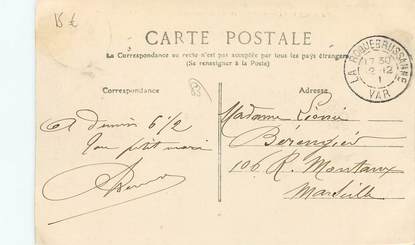 15 €
CARTE POSTALE
La Correspondance au recto n'est pas acceptée par tous les pays étrangers
(Se renseigner à la Poste)
Correspondance
Adresse
LA ROQUEBRUSSANNE
17 30
2 12
VAR
A demain 6 1/2
Ton petit mari
Madame Léonie
Bérengier
106 R.
Marseille